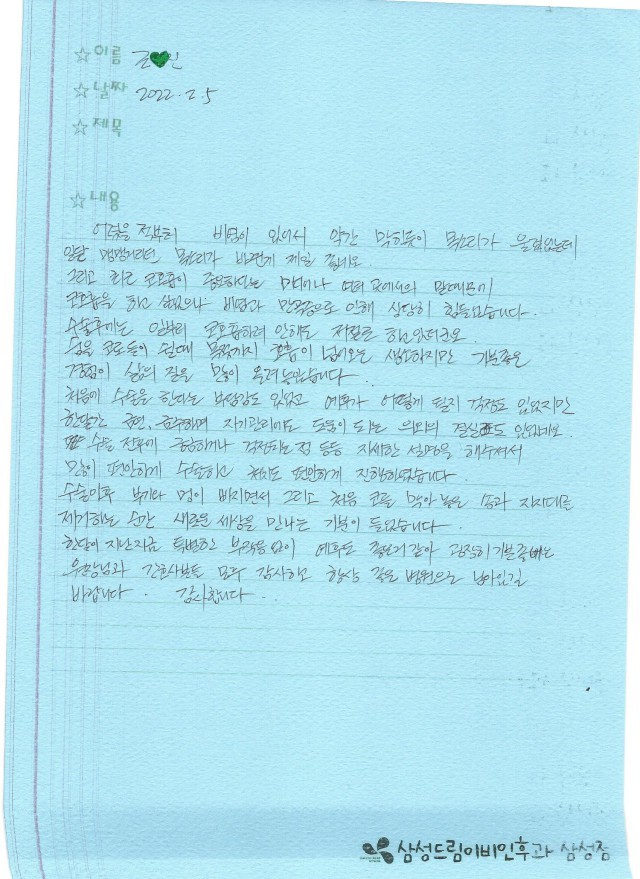 ☆이름 김♥인
☆날짜 2022.2.5
☆제목
☆내용
어렸을적부터 비염이 있어서 약간 막히듯이 목소리가 울렸었는데
맹맹거리던 목소리가 바뀐게 제일 컸네요
그리고 코호흡이 중요하다는 말때문에
코호흡을 하고 싶었으나 비염과 만곡증으로 인해 상당히 힘들었습니다.
수술후에는 일부러 코호흡하려 안해도 저절로 하고있더라고요.
숨을 코로 들이 쉴때 목젖까지 호흡이 넘어오는 생소하지만 기분좋은
경험이 삶의 질을 많이 올려놓았습니다.
처음에 수술을 한다는 부담감도 있었고 예후가 어떻게 될지 걱정도 있었지만
한달간 금연, 금주하며 자기관리에도 도움이 되는 의외의 결실도 있었네요.
수술 전후에 궁금하거나 걱정되는 점 등등 자세한 설명을 해주셔서
많이 편안하게 수술하고 처치도 편안하게 진행하였습니다.
수술이후 붓기와 멍이 빠지면서 그리고 처음 코를 막아 놓은 솜과 지지대를
제거하는 순간 새로운 세상을 만나는 기분이 들었습니다.
한달이 지난지금 특별한 부작용 없이 예후도 좋은거 같아 굉장히 기분좋네요
원장님과 간호사분들 모두 감사하고 항상 같은 병원으로 남아있길
바랍니다. 감사합니다..
삼성드림이비인후과 삼성점